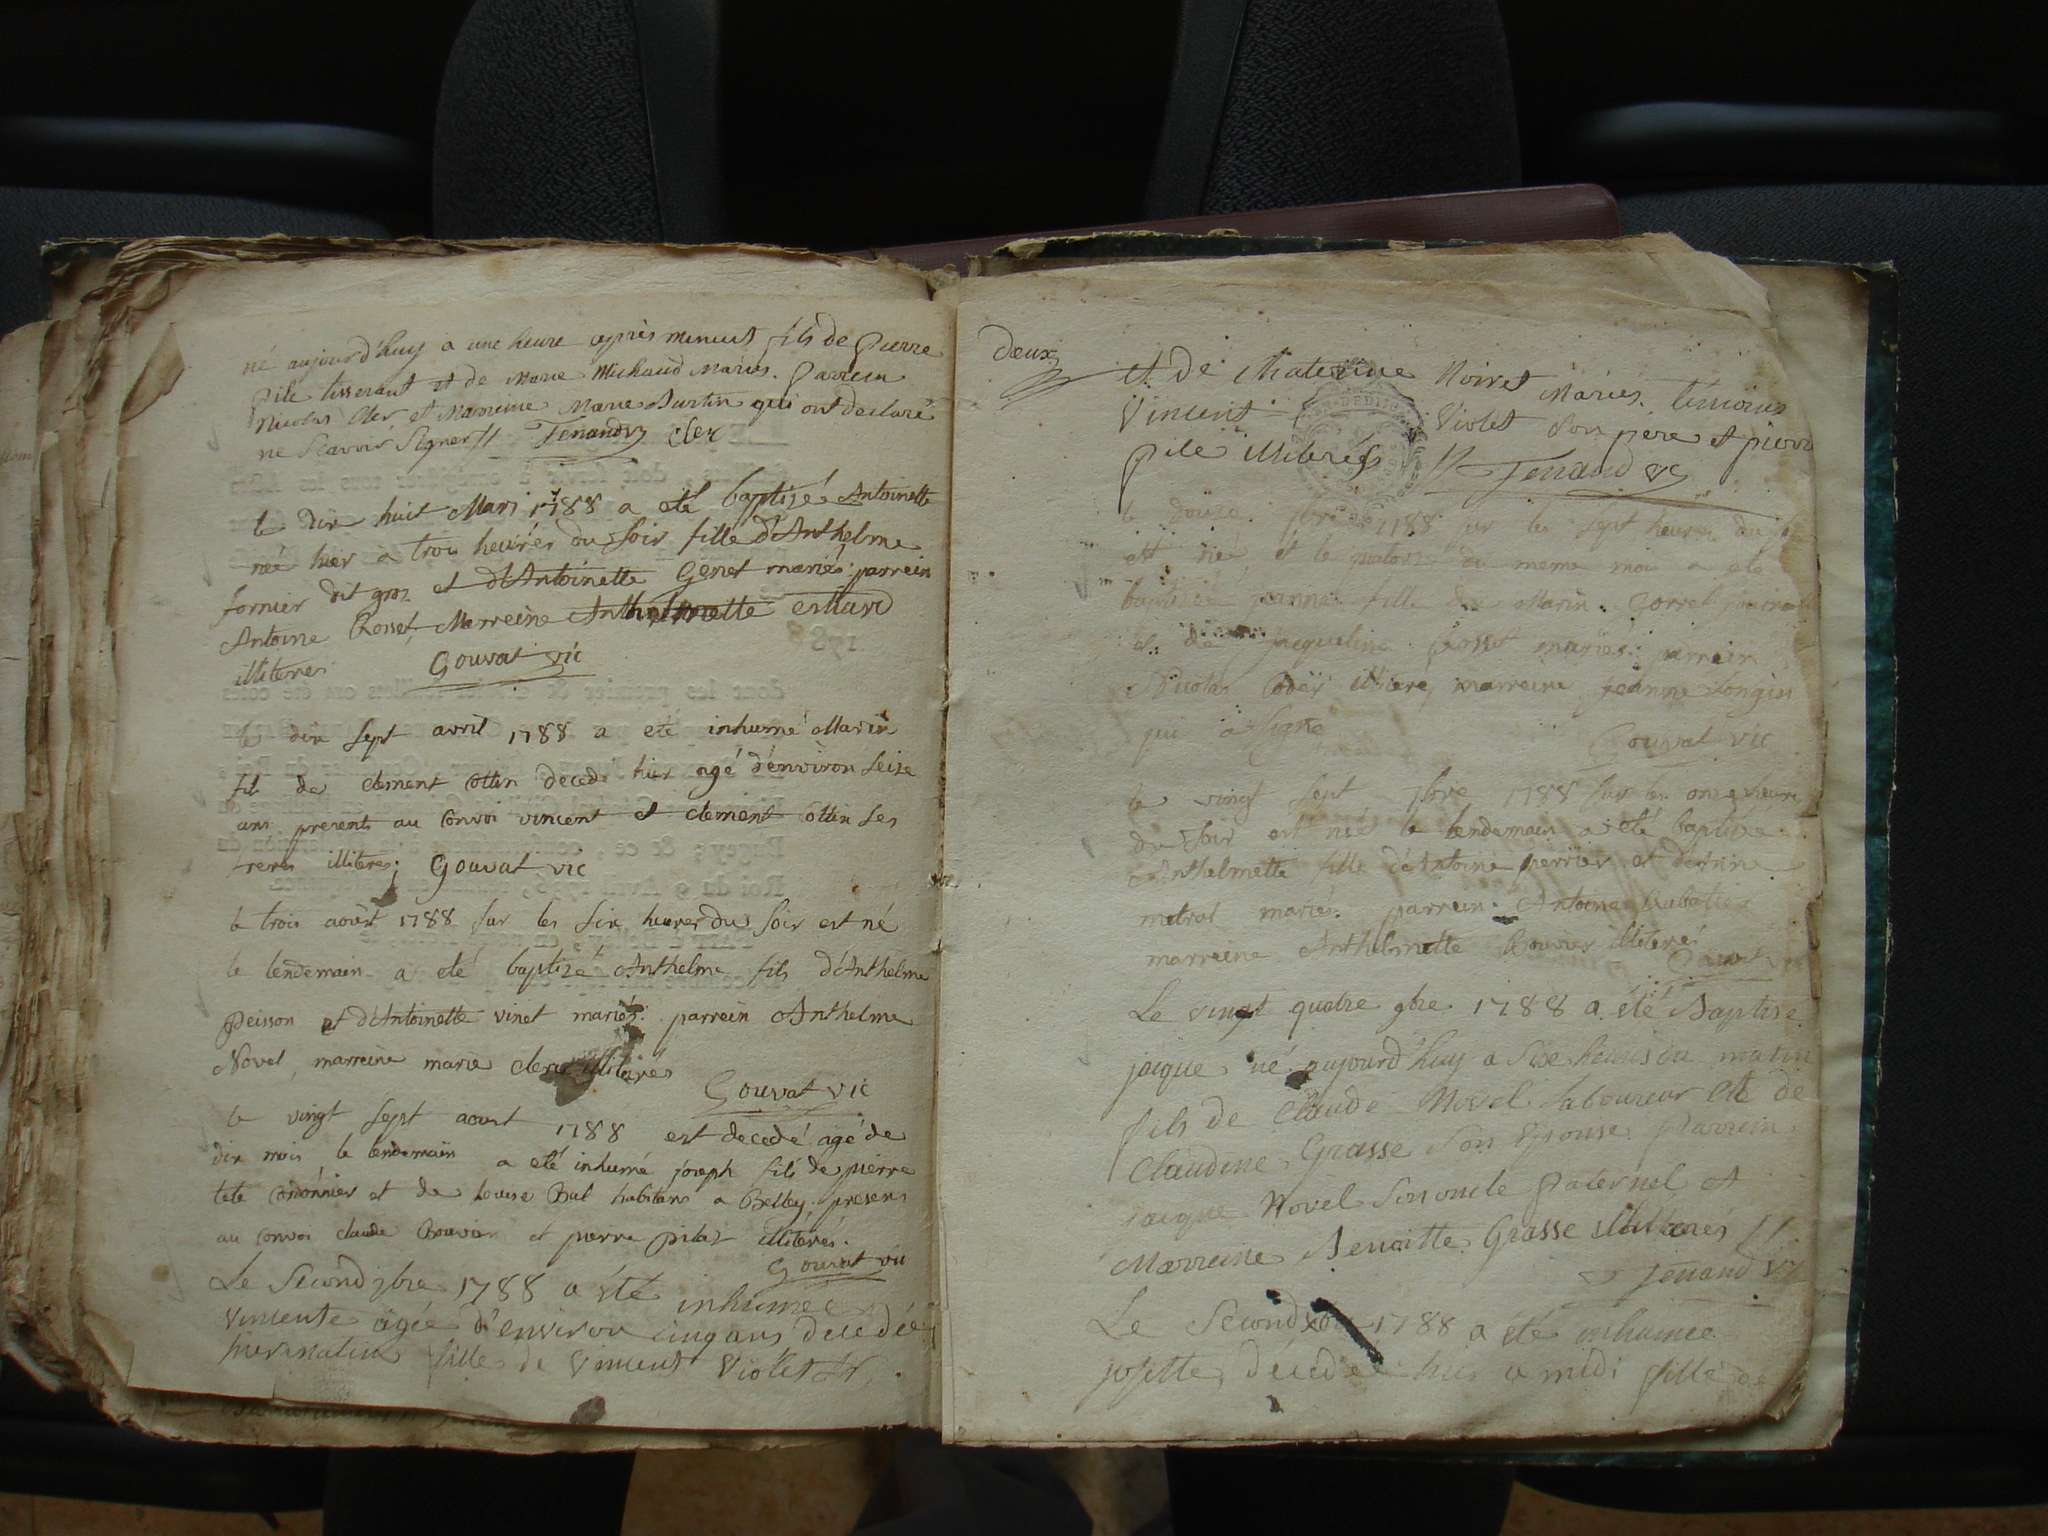 né aujourd'huy a une heure après minuit fils de Pierre
Pile tisserant et de Marie Michaud Mariés. Parrein
Nicolas Cler et Marreine Marie Burtin qui ont declaré
ne Scavoir Signer // Tenand vy Cler
le dix huit Mars 1788 a eté baptizé Antoinette
née hier a trois heures du Soir fille d'Anthelme
fornier dit groz et d'Antoinette Genet mariés; parrein
Antoine Rosset Marreine Anthelmette
illiteres Gouvat vic
le dix sept avril 1788 a eté inhumé Marin
fils de clement Cottin decedé hier agé d'environ seize
ans presents au Convoi vincent et clement Cottin Ses
freres illiteres; Gouvat vic
le trois aoust 1788 sur les six heures du Soir est né
le lendemain a eté baptizé Anthelme fils d'Anthelme
Peisson et d'Antoinette vinet mariés. parrein Anthelme
Novel, marreine marie clerc illiterés
Gouvat vic
le vingt Sept aoust 1788 est decedé agé de
dix mois le lendemain a eté inhumé joseph fils de pierre
tete Cordonnier et de Louise habitans a Belley. presens
au Convoi claude Bouvier et pierre pilaz illiterés.
Gouvat vic
Le Second 7bre 1788 a été inhumée
Vincente agée d'environ cinq ans decedée
hier matin fille de Vincent Violet
deux
et de Chaterine Noiret Mariés. témoins
Vincent Violet Son pere et pierre
Pile illiterés // Tenand vi
le douze 7bre 1788 sur les sept heures du
est née et le quatorze du meme mois a eté
baptizée jeanne fille de Marin Gorret
et de jacqueline Rosset mariés; parrein
Nicolas illiteré, marreine jeanne Longin
qui a Signé
Gouvat vic
le vingt Sept 7bre 1788 sur les onze heures
du Soir est née le lendemain a eté baptizé
Anthelmette fille d'Antoine perrier et
metral mariés. parrein Antoine
marreine Anthelmette Bouvier illiterés
Gouvat vic
Le vingt quatre 9bre 1788 a été Baptisé
jacque né aujourd'huy a Six heures du matin
fils de Claude Novel Laboureur et de
Claudine Grasse Son Epouse. Parrein
jacque Novel Son oncle paternel et
Marreine Benoitte Grasse illiterés //
Tenand vi
Le Second 1788 a été inhumée
josette, décedée hier a midi fille de